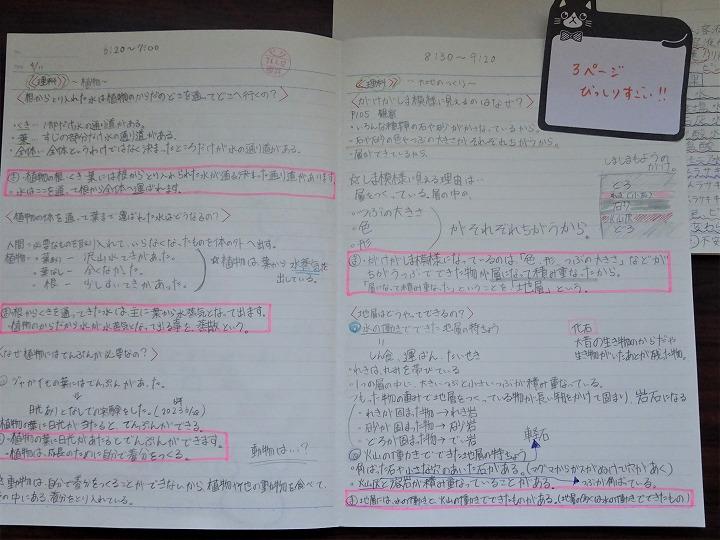 6:20〜7:00
9/11
理科 〜植物〜
〈根からとり入れた水は植物のからだのどこを通ってどこへ行くの?〉
・くき…1部だけ水の通り道がある。
・葉…すじの部分だけ水の通り道がある。
・全体…全体というわけではなく決まったところだけが水の通り道がある。
ま・植物の根・くき・葉には根からとり入れられた水が通る決まった通り道があります。
・水はここを通って根から全体へ運ばれます。
〈植物の体を通って葉まで運ばれた水はどうなるの?〉
人間…必要なものを取り入れて、いらなくなったものを体の外へ出す。
植物…・葉あり ー 沢山水てきがあった。
・葉なし ー 全くなかった。
・根 ー 少しすいてきがあった。
☆植物は、葉から水蒸気を
出している。
ま・根からくきを通ってきた水は、主に葉から水蒸気となって出ます。
・植物のからだから水が水蒸気となって出る事を、蒸散という。
〈なぜ植物にはでんぷんが必要なの?〉
ジャガイモの葉にはでんぷんがあった。
日光ありとなしでの実験をした。
植物の葉に日光が当たると、でんぷんができる。
・植物の葉に日光があたるとでんぷんができます。
・植物は、成長のために自分で養分をつくる。
動物は…?
動物は、自分で養分をつくることができないから、植物や他の動物を食べて、
その中にある養分をとり入れている。
8:30〜9:20
理科 〜大地のつくり〜
〈がけがしま模様に見えるのはなぜ?〉
P105 観察
・いろんな種類の石や砂がかさなっているから。
・石や砂の色やつぶの大きさがそれぞれちがうから。
・層ができているから。
しましまもようの
がけ。
どろ
石り
火山灰
どろ
☆しま模様に見える理由は…
層をつくっている層の中の、
・つぶの大きさ
・色
・形
がそれぞれちがうから。
ま・がけがしま模様になっているのは「色、形、つぶの大きさ」などが
ちがうつぶでできた物が層になって積み重なったから。
「層になって積み重なった」ということを「地層」という。
〈地層はどうやってできるの?〉
水の働きでできた地層の特ちょう
しん食、運ぱん、たいせき
化石
大昔の生き物のからだや
生き物がいたあとが残った物。
・れきは、丸みを帯びている
・1つの層の中に、大きいつぶと小さいつぶが積み重なっている。
・つもった物の重みで地層をつくっている物が長い年月をかけて固まり、岩石になる
・れきが固まった物→れき岩
・砂が固まった物→砂岩
・どろが固まった物→でい岩
軽石
火山の働きでできた地層の特ちょう
・角ばった石や小さな穴のあいた石がある。(マグマからガスがぬけて穴があく)
・火山灰と溶岩が積み重なっていることがある。 つぶが角ばっている。
ま・地層には、水の働きと火山の働きでできたものがある。(地層の多くは水の働きでできたもの)
3ページ
びっしりすごい!!